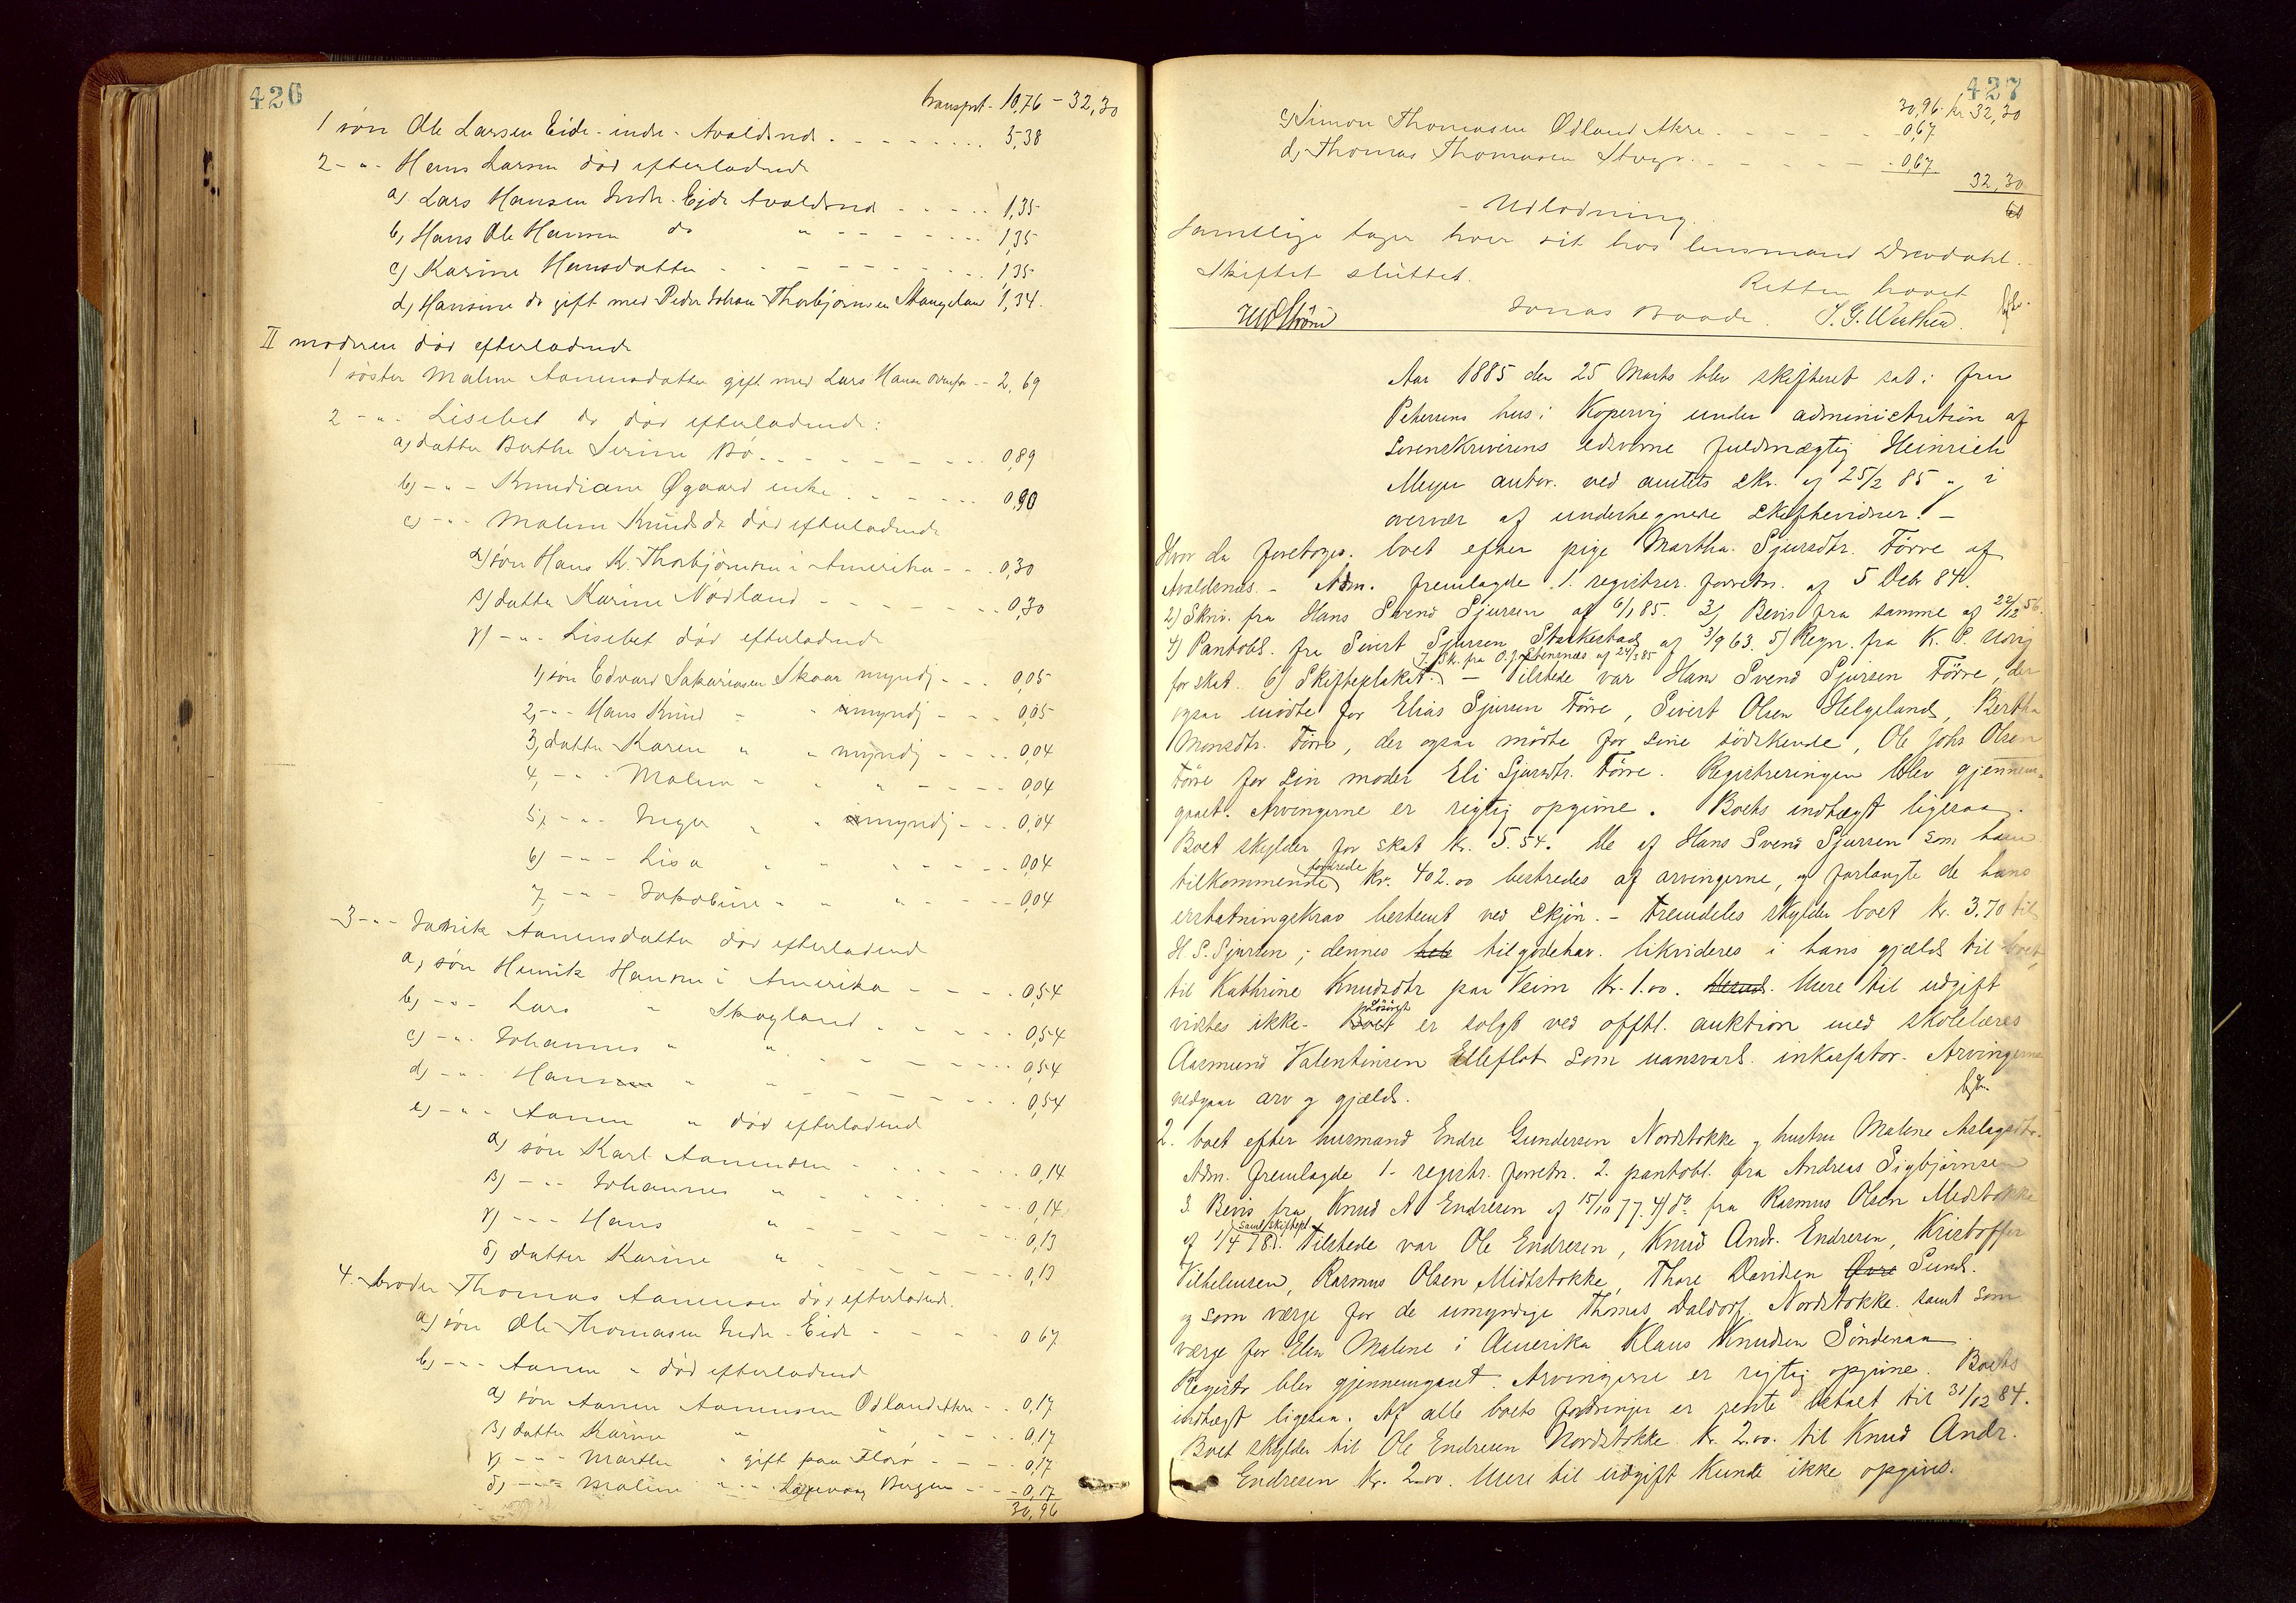 426
transport - 10,76 - 32,30
1 søn Ole Larsen Eide - indr - Avaldsnds . 5,38
2 - " - Hans Larsen død efterladende
a) Lars Hansen Indr. Ejde Avaldsnd 1,35
b) Hans Ole Hansen do " 1,35
c) Karine Hansdatter 1,35
d) Hansine do gift med Peder Johan Thorbjørnsen Mangeland 1,34
II moderen død efterladende
1 søster Malene Aanensdatter gift med Lars Hansen 2,69
2 - " - Lisebet do død efterladende:
a) datter Berthe Serine Bø 0,89
b) - " - Knudiane Øgaard enke 0,90
c) - " - Malene Knudsdr død efterladende
α) søn Hans K. Thorbjørnsen i Amerika 0,30
β) datter Karine Nødland 0,30
γ) - " - Lisebet død efterladende
1) søn Edvard Sakariasen Skaar myndig 0,05
2, - " - Hans Knud " " myndj 0,05
3, datter Karen " " myndj 0,04
4, - " - Malene " " " 0,04
5, - " - Inger " " myndj 0,04
6) - " - Lisa " " 0,04
7, - " - Jakobine " " " 0,04
3 - " - Janike Aanensdatter død efterladend
a, søn Henrik Hansen i Amerika 0,54
b) - " - Lars " Skogland 0,54
c) - " - Johannes " " 0,54
d) - " - Hans " " 0,54
e) - " - Aanen " død efterladend
α) søn Karl Aanensen 0,14
β) - " - Johannes " 0,14
γ) - " - Hans " 0,13
δ) datter Karine " 0,13
4. broder Thomas Aanensen død efterladend.
a) søn Ole Thomasen Indr - Eide 0,67
b) - " - Aanen " død efterladend
α) søn Aanen Aanensen Ødland Akre 0,17
β) datter Karine " " 0,17
γ) - " - Marthe " gift paa Florø 0,17
δ) - " - Maline " " Bergen 0,17
30,96
427
30,96 - kr 32,30
c) Simon Thomasen Ødland Akre 0,67
d) Thomas Thomasen 0,67
32,30
Udlodning.
Samtlige tager hver sit hos lensmand Drevdahl.
Skiftet sluttet.
Retten hævet
Jonas Baade. S. G. Werthen.
Aar 1885 den 25 Marts blev skifteret sat i fru
Petersens hus i Kopervig under administration af
sorenskriverens edsvorne fuldmægtig Heinrich
Meyer autor. ved amtets skr. af 25/2 85 og i
overvær af undertegnede skiftevidner. -
Hvor da foretoges. boet efter pige Martha Sjursdtr. Førre af
Avaldsnes. - Adm. fremlagde 1. registrer. forretn. af 5 Debr 84.
2) Skriv. fra Hans Svend Sjursen af 6/1 85. 3) Bevis fra samme af 22/12 56.
4) Pantobl. fra Sivert Sjursen Starkestad af 3/9 63. 5) Regn. fra K. P. Udvig
7. Sk. fra O. J. Stensnæs af 24/3 85
for skat. 6) Skifteplakat. - Tilstede var Hans Svend Sjursen Førre, der
ogsaa mødte for Elias Sjursen Førre, Sivert Olsen Helgeland, Bertha
Monsdtr. Førre, der ogsaa mødte for sine sødskende, Ole Johs Olsen
Førre for sin moder Eli Sjursdtr. Førre. Registreringen blev gjennem-
gaaet. Arvingerne er rigtig opgivne. Boets indtægt ligesaa.
Boet skylder for skat kr. 5.54. De af Hans Svend Sjursen som ham
tilkommende fordrede kr. 402.00 bestredes af arvingerne, og forlangte de hans
erstatningskrav bestemt ved skjøn. - Fremdeles skylder boet kr. 3.70 til
H. S. Sjursen; dennes tilgodehav. likvideres i hans gjæld til boet,
til Kathrine Knudsdtr paa Veim kr. 1.00. Mere til udgift
vidstes ikke. Løsøret er solgt ved offtl. auktion med skolelærer
Aasmund Valentinsen Elleflot som uansvarl. inkassator. Arvingerne
vedgaar arv og gjæld.
2. boet efter husmand Endre Gundersen Nordstokke og hustru Malene Aslagsdtr.
Adm. fremlagde 1. registr. forretn. 2. pantobl. fra Andreas Sigbjørnsen
3. Bevis fra Knud A Endresen af 15/10 77. 4) do fra Rasmus Olsen Midstokke
samt skiftepl.
af 1/4 78. Tilstede var Ole Endresen, Knud Andr. Endresen, Kristoffer
Vilhelmsen, Rasmus Olsen Midtstokke, Thore Davidsen Øvre Sund.
og som værge for de umyndige Thomas Daldorf Nordstokke. samt som
værge for Elen Malene i Amerika Klaus Knudsen Søndenaa.
Registr blev gjennemgaaet. Arvingerne er rigtig opgivne. Boets
indtægt ligesaa. Af alle boets fordringer er rente betalt til 31/12 84.
Boet skylder til Ole Endresen Nordstokke kr. 2.00. til Knud Andr.
Endresen kr. 2.00. Mere til udgift kunde ikke opgives.